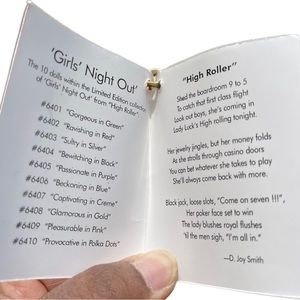 'Girls' Night Out'
The 10 dolls within the Limited Edition collection
of 'Girls' Night Out' from "High Roller"
#6401 "Gorgeous in Green"
#6402 "Ravishing in Red"
#6403 "Sultry in Silver"
#6404 "Bewitching in Black"
#6405 "Passionate in Purple"
#6406 "Beckoning in Blue"
#6407 "Captivating in Creme"
#6408 "Glamorous in Gold"
#6409 "Pleasurable in Pink"
#6410 "Provocative in Polka Dots"
"High Roller"
Shed the boardroom 9 to 5
To catch that first class flight
Look out boys, she's coming in
Lady Luck's High rolling tonight.
Her jewelry jingles, but her money folds
As she strolls through casino doors
You can bet whatever she takes to play
She'll always come back with more.
Black jack, loose slots, "Come on seven !!!",
Her poker face set to win
The lady blushes royal flushes
'til the men sigh, "I'm all in."
—D. Joy Smith